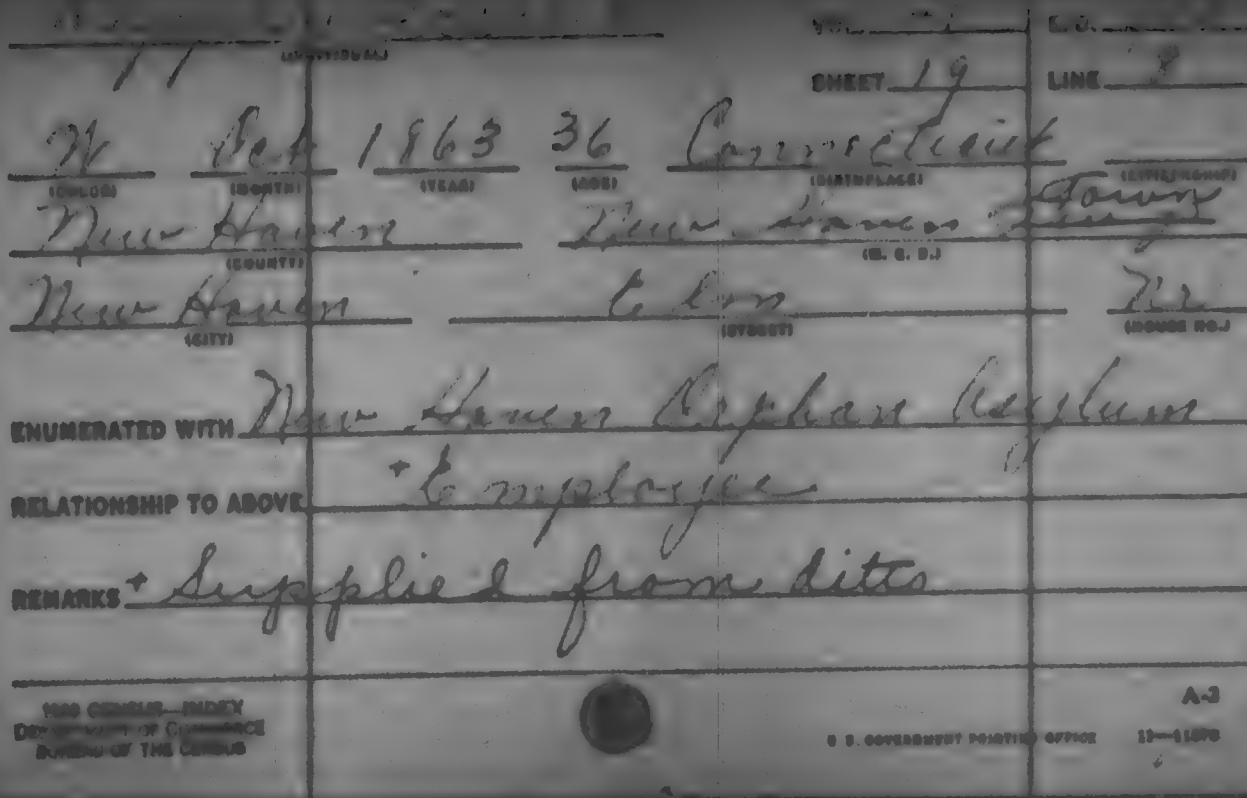 (INDIVIDUAL)
SHEET 19 LINE
W Oct 1863 36 Connecticut
(COLOR) (MONTH) (YEAR) (AGE) (BIRTHPLACE) (CITIZENSHIP)
New Haven New Haven Town
(COUNTY) (M. C. D.)
New Haven Elm
(CITY) (STREET) (HOUSE NO.)
ENUMERATED WITH New Haven Orphan Asylum
RELATIONSHIP TO ABOVE + Employee
REMARKS + Supplied from ditto
1900 CENSUS—INDEX A-3
DEPARTMENT OF COMMERCE U. S. GOVERNMENT PRINTING OFFICE
BUREAU OF THE CENSUS